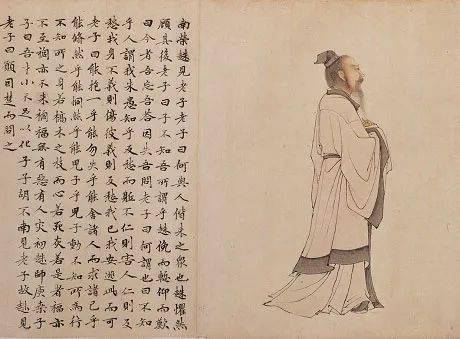 南榮趎見老子老子曰何與人偕來之眾也趎懼然
顧其後老子曰子不知吾所謂乎趎俛而慚仰而歎
曰今者吾忘吾答因失吾問老子曰何謂也曰不知
乎人謂我朱愚知乎反愁而軀不仁則害人仁則反
愁我身不義則傷彼義則反愁我已我安逃此而可
老子曰能抱一乎能勿失乎能舍諸人而求諸己乎
能翛然乎能侗然乎能兒子乎兒子動不知所為行
不知所之身若槁木之枝而心若死灰若是者禍亦
不至福亦不來禍福無有惡有人災初趎師庚桑子
子曰吾才小不足以化子子胡不南見老子故趎見
老子曰願因楚而問之